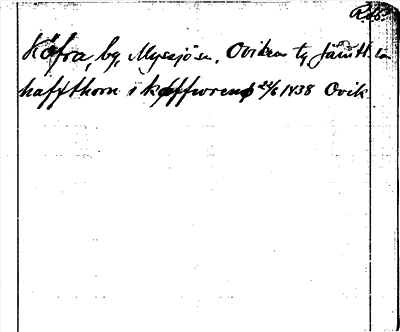 Röfra, by, Myssjö sn, Ovikens tg Jämtl. ln
haffthorn i köffwren 22/6 1438 Ovik